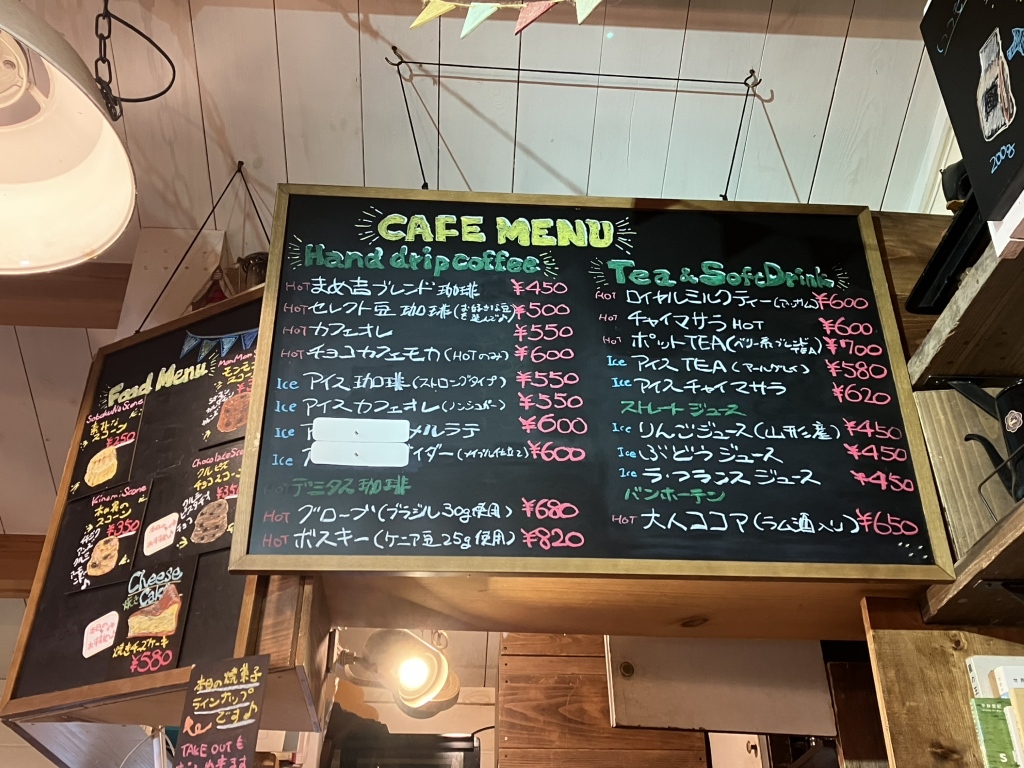 CAFE MENU
Hand drip coffee
HOT まめ吉ブレンド珈琲 ¥450
HOT セレクト豆珈琲(お好きな豆を選んで♪) ¥500
HOT カフェオレ ¥550
HOT チョコカフェモカ(HOTのみ) ¥600
Ice アイス珈琲(ストロングタイプ) ¥550
Ice アイスカフェオレ(ノンシュガー) ¥550
Ice メルラテ ¥600
Ice イダー(メイプル仕立て) ¥600
デミタス珈琲
HOT グローブ(ブラジル30g使用) ¥680
HOT ボスキー(ケニア豆25g使用) ¥820
Tea & Soft Drink
HOT ロイヤルミルクティー(アッサム) ¥600
HOT チャイマサラ HOT ¥600
HOT ポットTEA(ベリー系ブレンドTEA) ¥700
Ice アイスTEA(アールグレイ) ¥580
Ice アイスチャイマサラ ¥620
ストレートジュース
Ice りんごジュース(山形産) ¥450
Ice ぶどうジュース ¥450
Ice ラ・フランスジュース ¥450
バンホーテン
HOT 大人ココア(ラム酒入り) ¥650
Food Menu
¥250
Chocolate Sco
Kinomi Scone
木の実の
スコーン
¥350
Cheese
Cake
焼きチーズケーキ
¥580
本日の焼菓子
ラインナップ
です♪
TAKE OUTも
200g